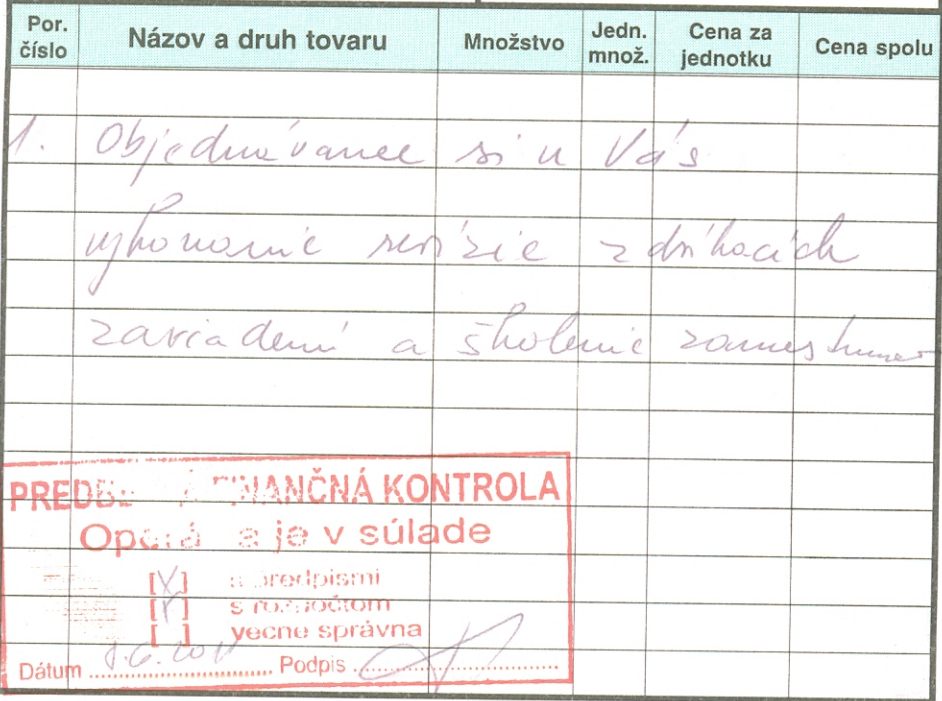 Por. číslo Názov a druh tovaru Množstvo Jedn. množ. Cena za jednotku Cena spolu
1. Objednávame si u Vás
vykonanie revízie zdvíhacích
zariadení a školenie
PREDB FINANČNÁ KONTROLA
Operá a je v súlade
[X] s predpismi
[Y] s rozpočtom
[ ] vecne správna
Dátum Podpis